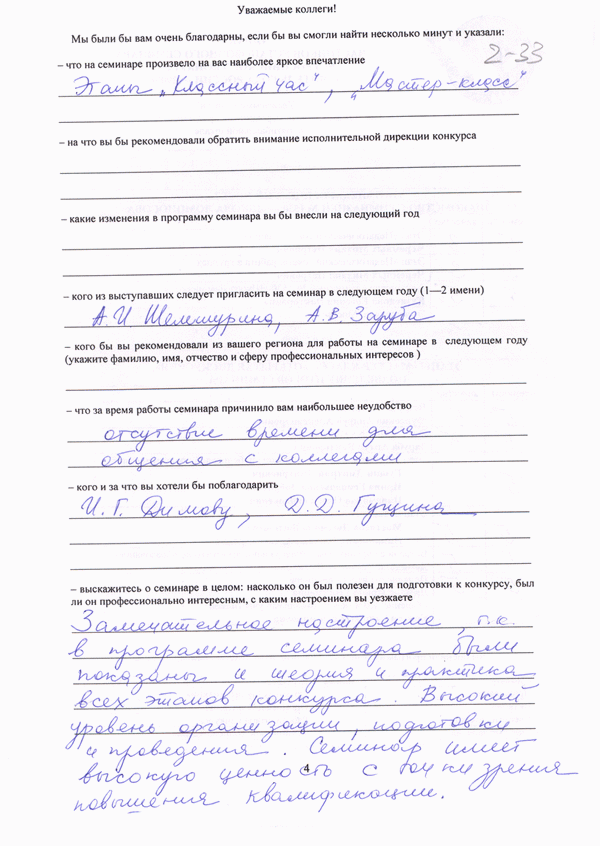 Уважаемые коллеги!
Мы были бы вам очень благодарны, если бы вы смогли найти несколько минут и указали:
2-33
– что на семинаре произвело на вас наиболее яркое впечатление
Этапы „Классный час“, „Мастер-класс“
– на что вы бы рекомендовали обратить внимание исполнительной дирекции конкурса
– какие изменения в программу семинара вы бы внесли на следующий год
– кого из выступавших следует пригласить на семинар в следующем году (1—2 имени)
А.И. Шемшурина, А.В. Заруба
– кого бы вы рекомендовали из вашего региона для работы на семинаре в следующем году
(укажите фамилию, имя, отчество и сферу профессиональных интересов )
– что за время работы семинара причинило вам наибольшее неудобство
отсутствие времени для
общения с коллегами
– кого и за что вы хотели бы поблагодарить
И.Г. Димову, Д.Д. Гущина
– выскажитесь о семинаре в целом: насколько он был полезен для подготовки к конкурсу, был
ли он профессионально интересным, с каким настроением вы уезжаете
Замечательное настроение, т.к.
в программе семинара были
показаны и теория и практика
всех этапов конкурса. Высокий
уровень организации, подготовки
и проведения. Семинар имеет
высокую ценность с точки зрения
4
повышения квалификации.